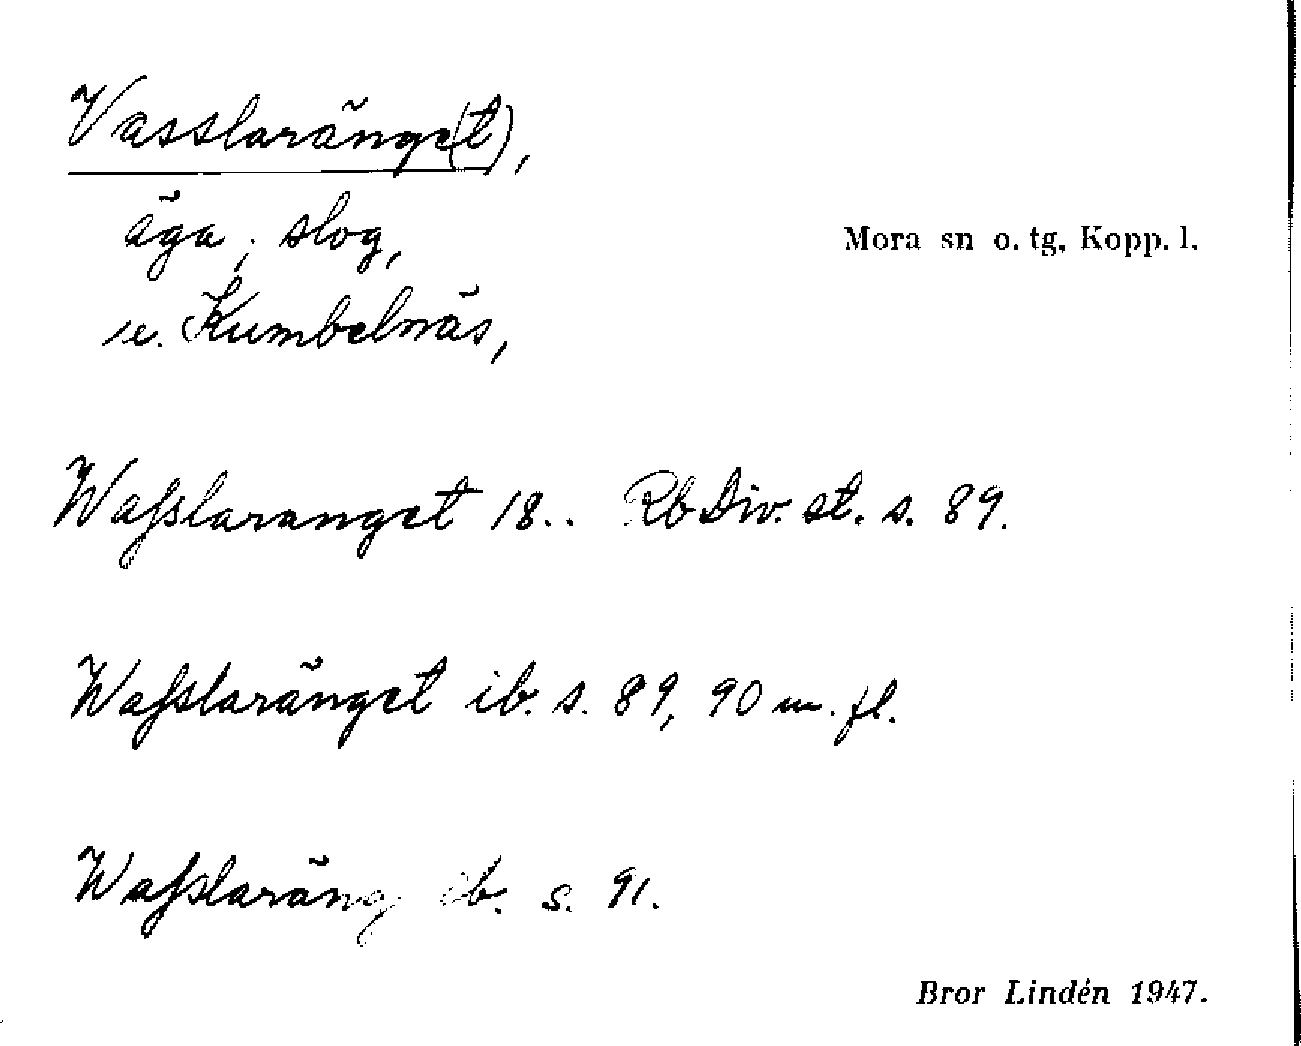 Vasslaränge(t),
äga; slog,
Mora sn o. tg, Kopp. l.
v. Kumbelnäs,
Waſslaranget 18.. Rb Div. st. s. 89.
Waſslaränget ib. s. 89, 90 m. fl.
Waſslaräng ib. s. 91.
Bror Lindén 1947.